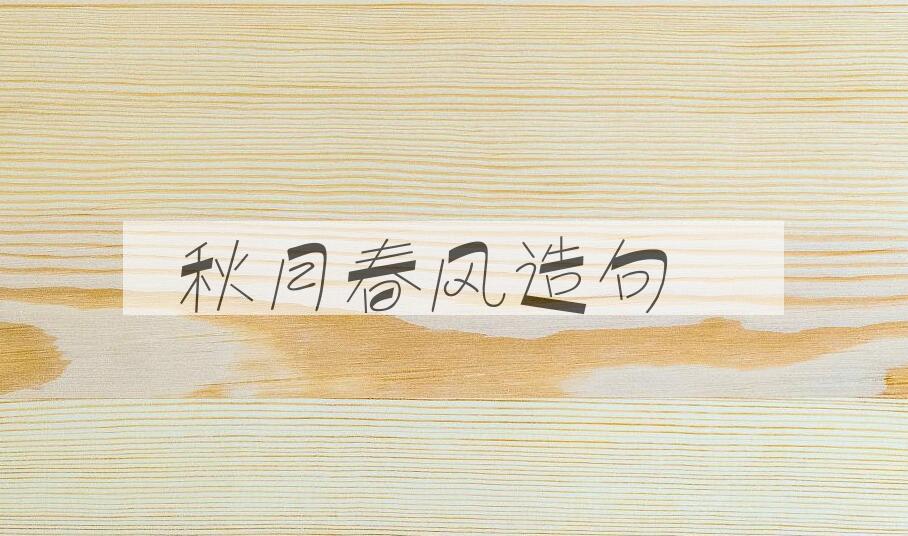 秋月春风造句